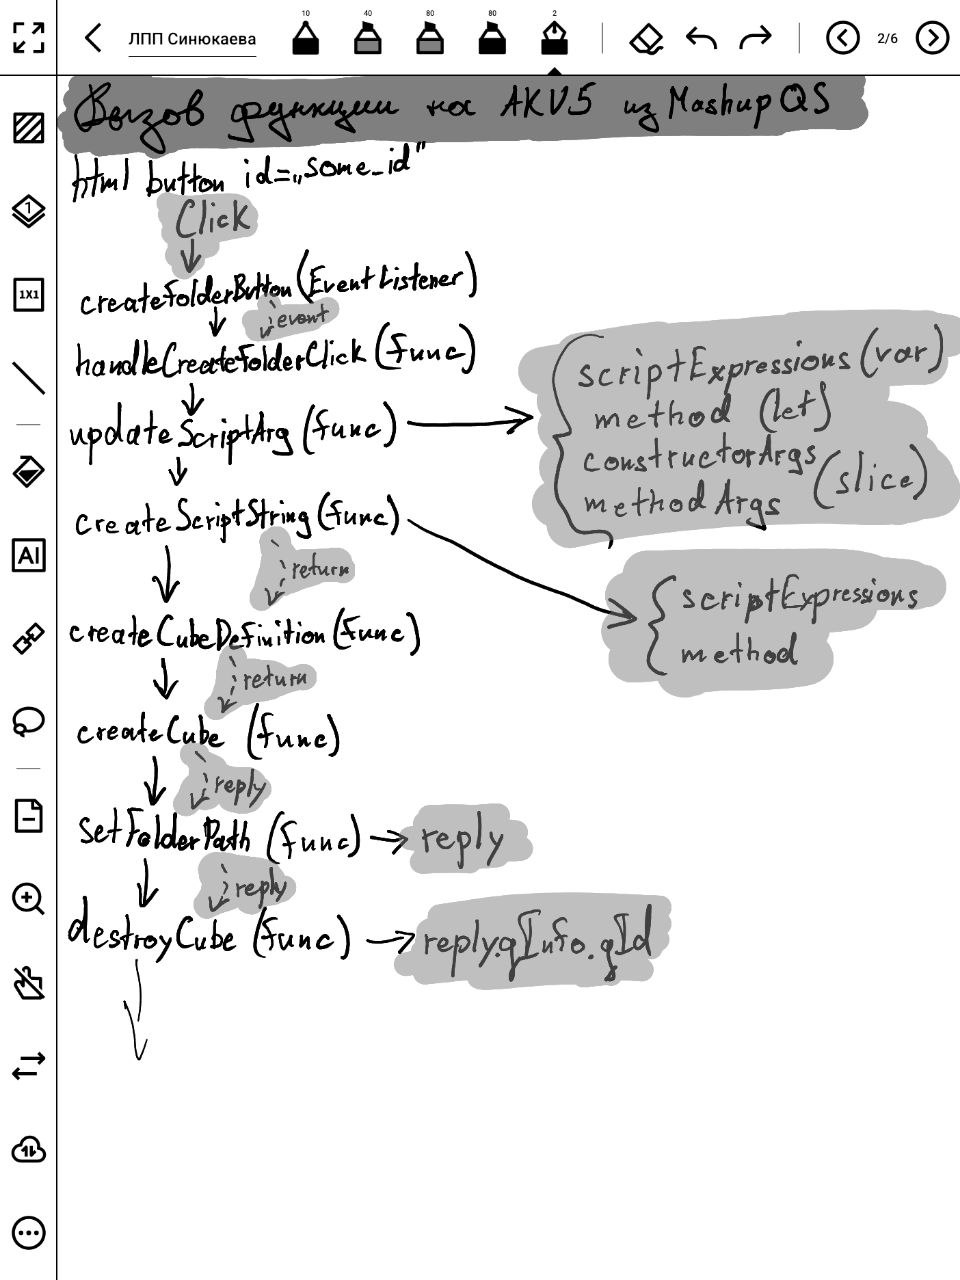 10 40 80 80 2
ЛПП Синюкаева
2/6
Вызов функции на AKV5 из Mashup QS
html button id=„some_id"
Click
createFolderButton (EventListener)
event
handleCreateFolderClick (func)
updateScriptArg (func)
scriptExpressions (var)
method (let)
constructorArgs
methodArgs (slice)
createScriptString (func)
return
scriptExpressions
method
createCubeDefinition (func)
return
createCube (func)
reply
setFolderPath (func) → reply
reply
destroyCube (func) → reply.qInfo.qId
1
1X1
AI